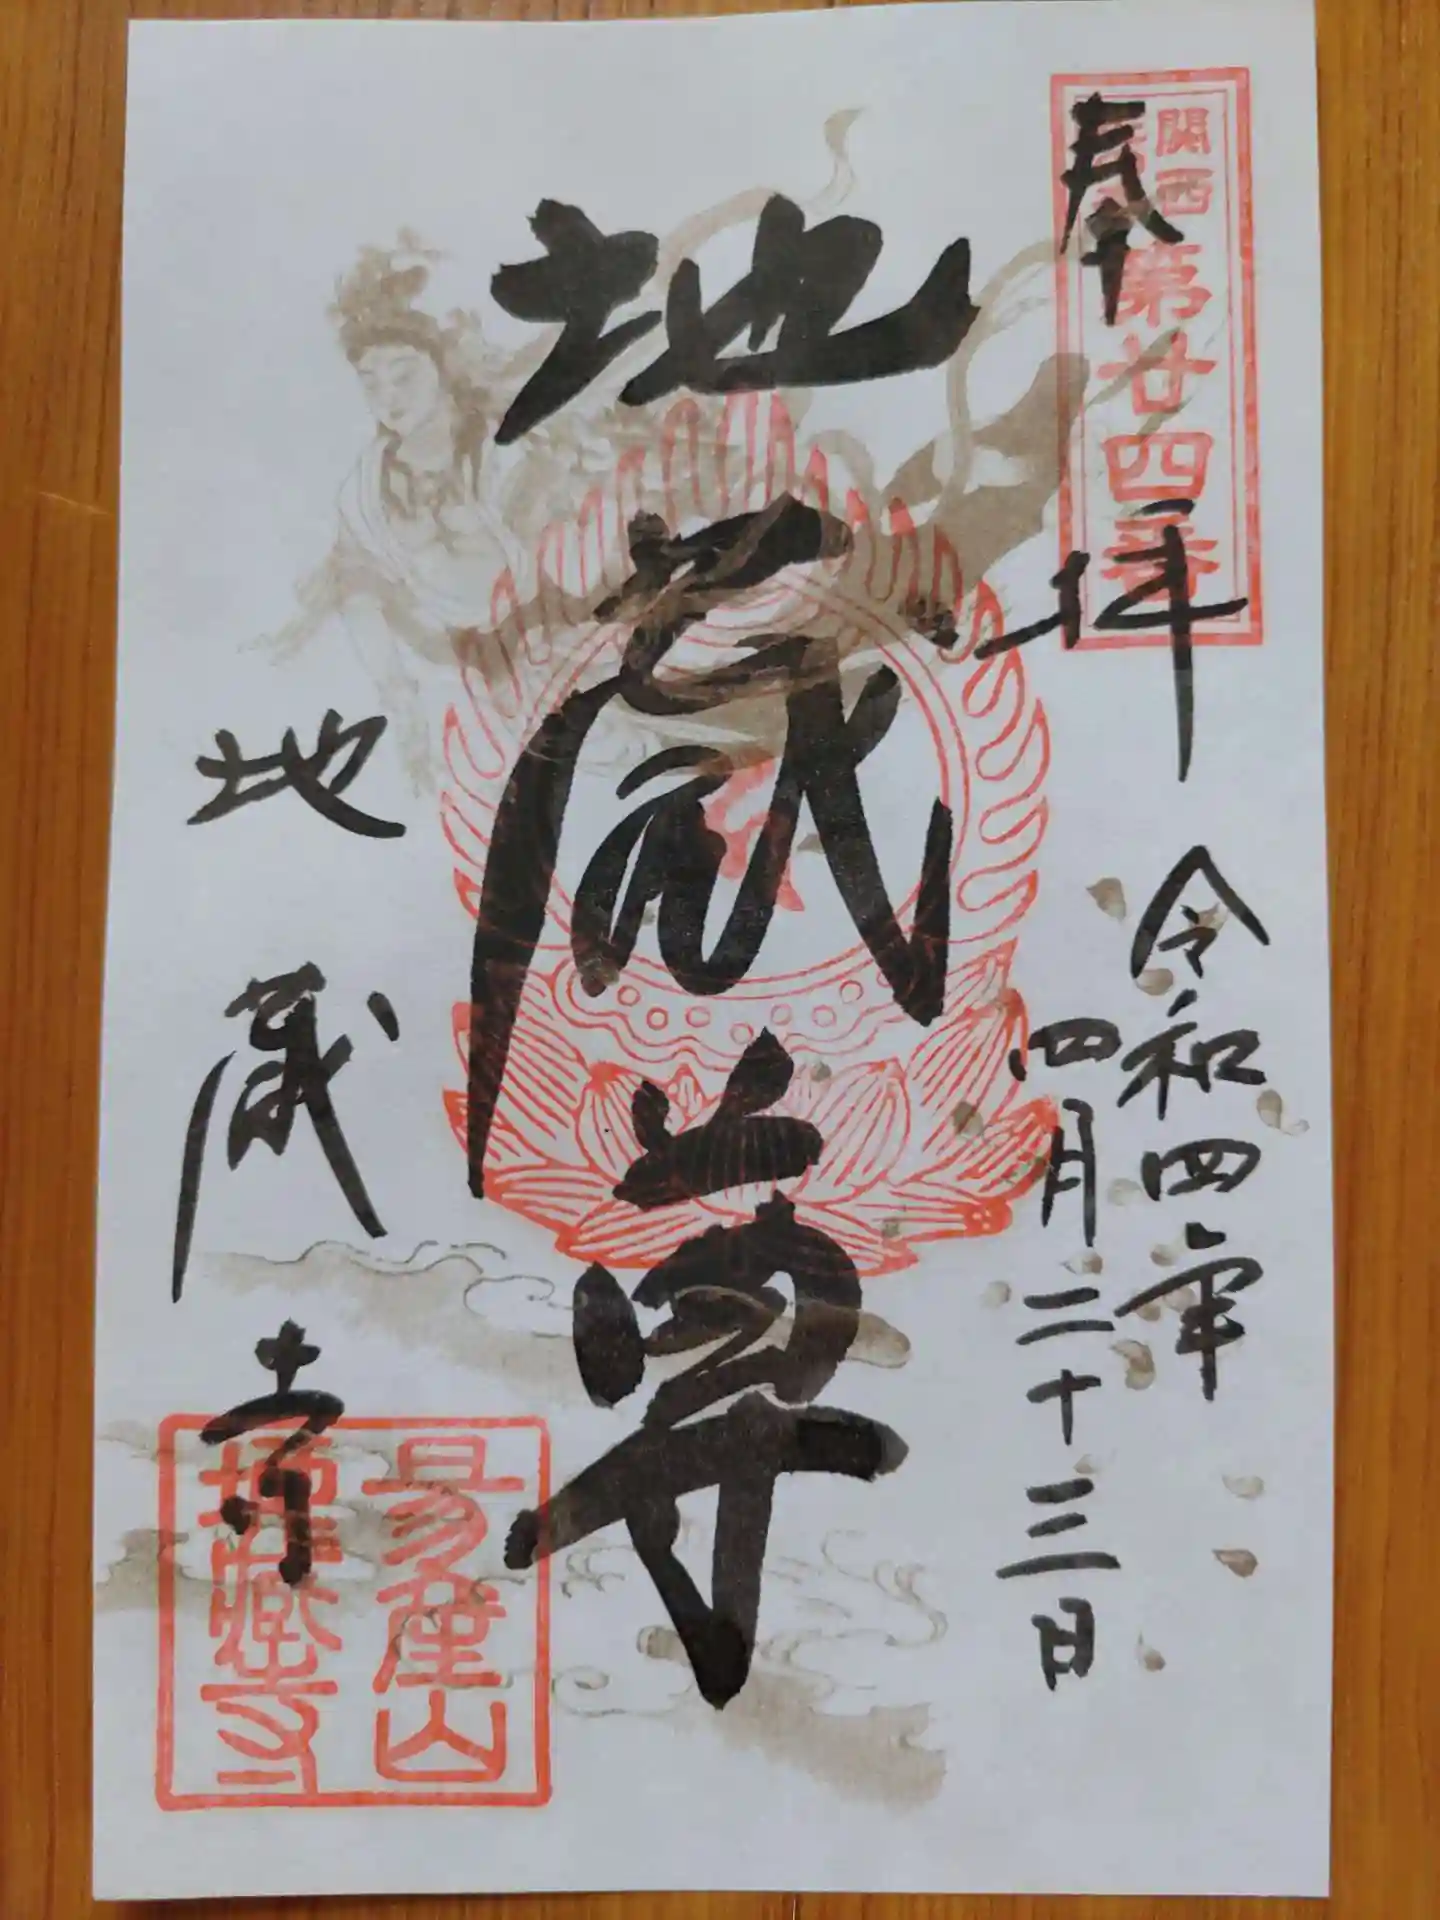 奉拝
関西
第廿四番
令和四年
四月二十三日
地蔵尊
地蔵寺
地蔵寺